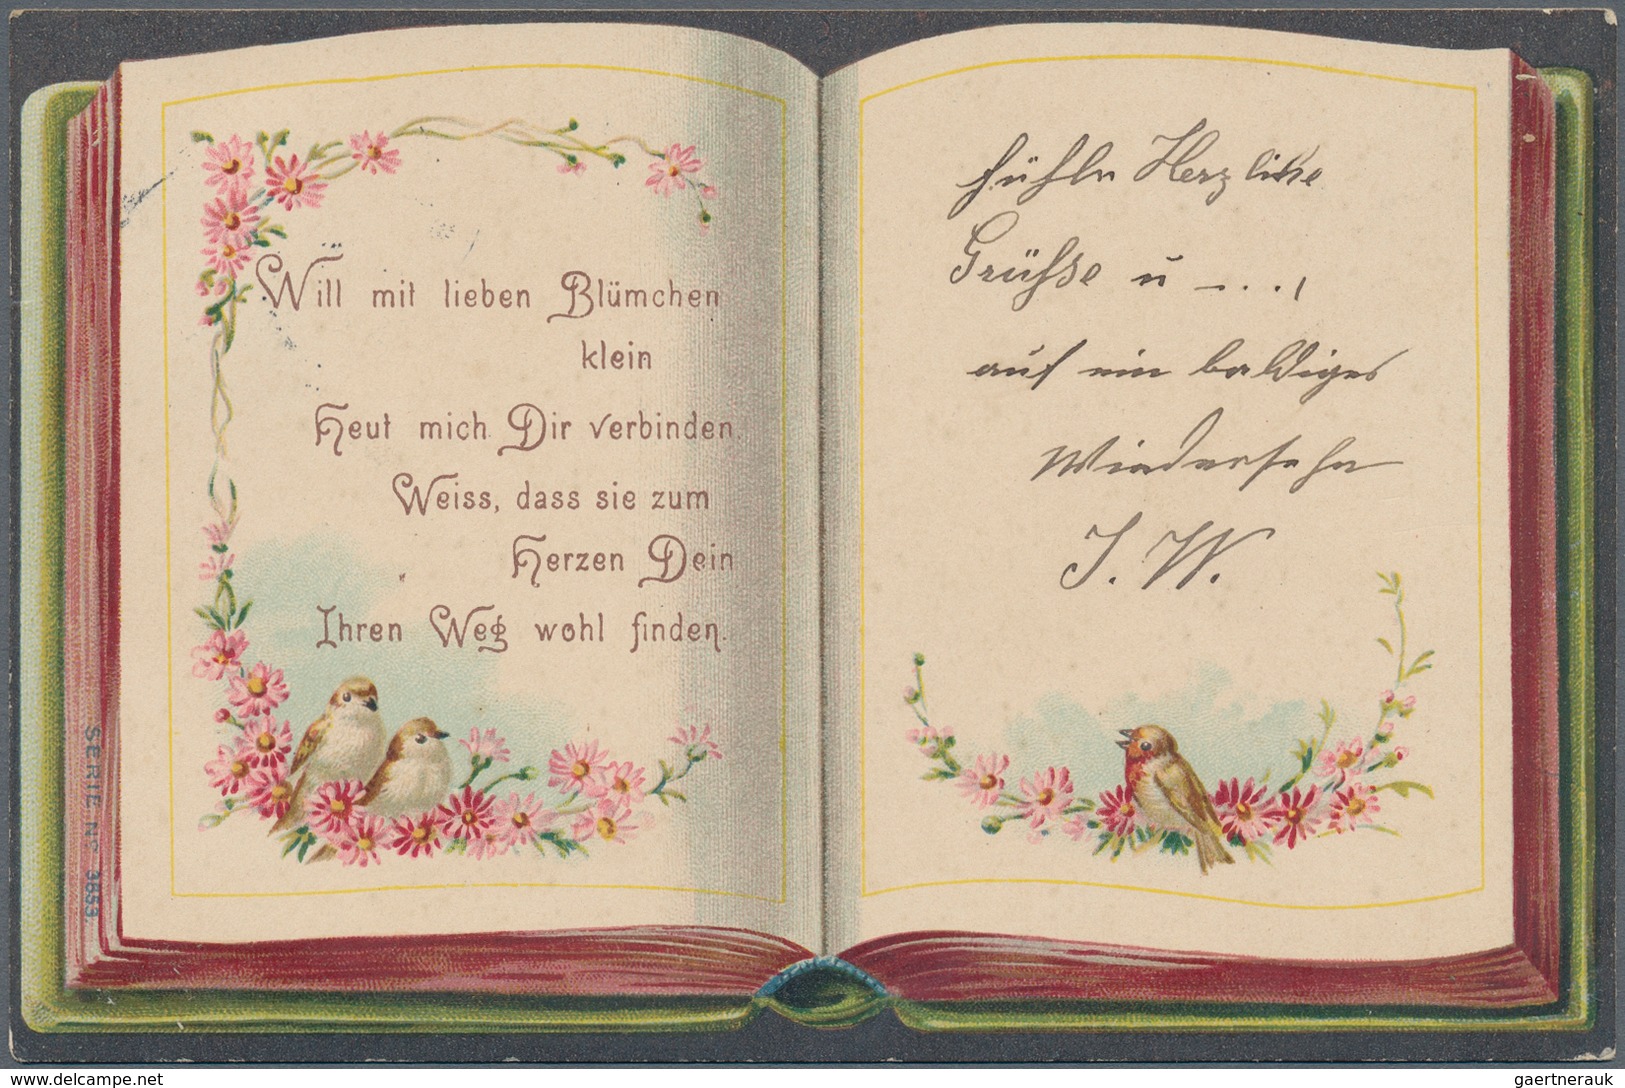 Will mit lieben Blümchen
klein
Heut mich Dir verbinden.
Weiss, dass sie zum
Herzen Dein
Ihren Weg wohl finden.
SERIE No 3653.
Herzliche
Grüsse u - . . . ,
auf ein baldiges
Wiedersehn
J. W.
www.delcampe.net
gaertnerauk